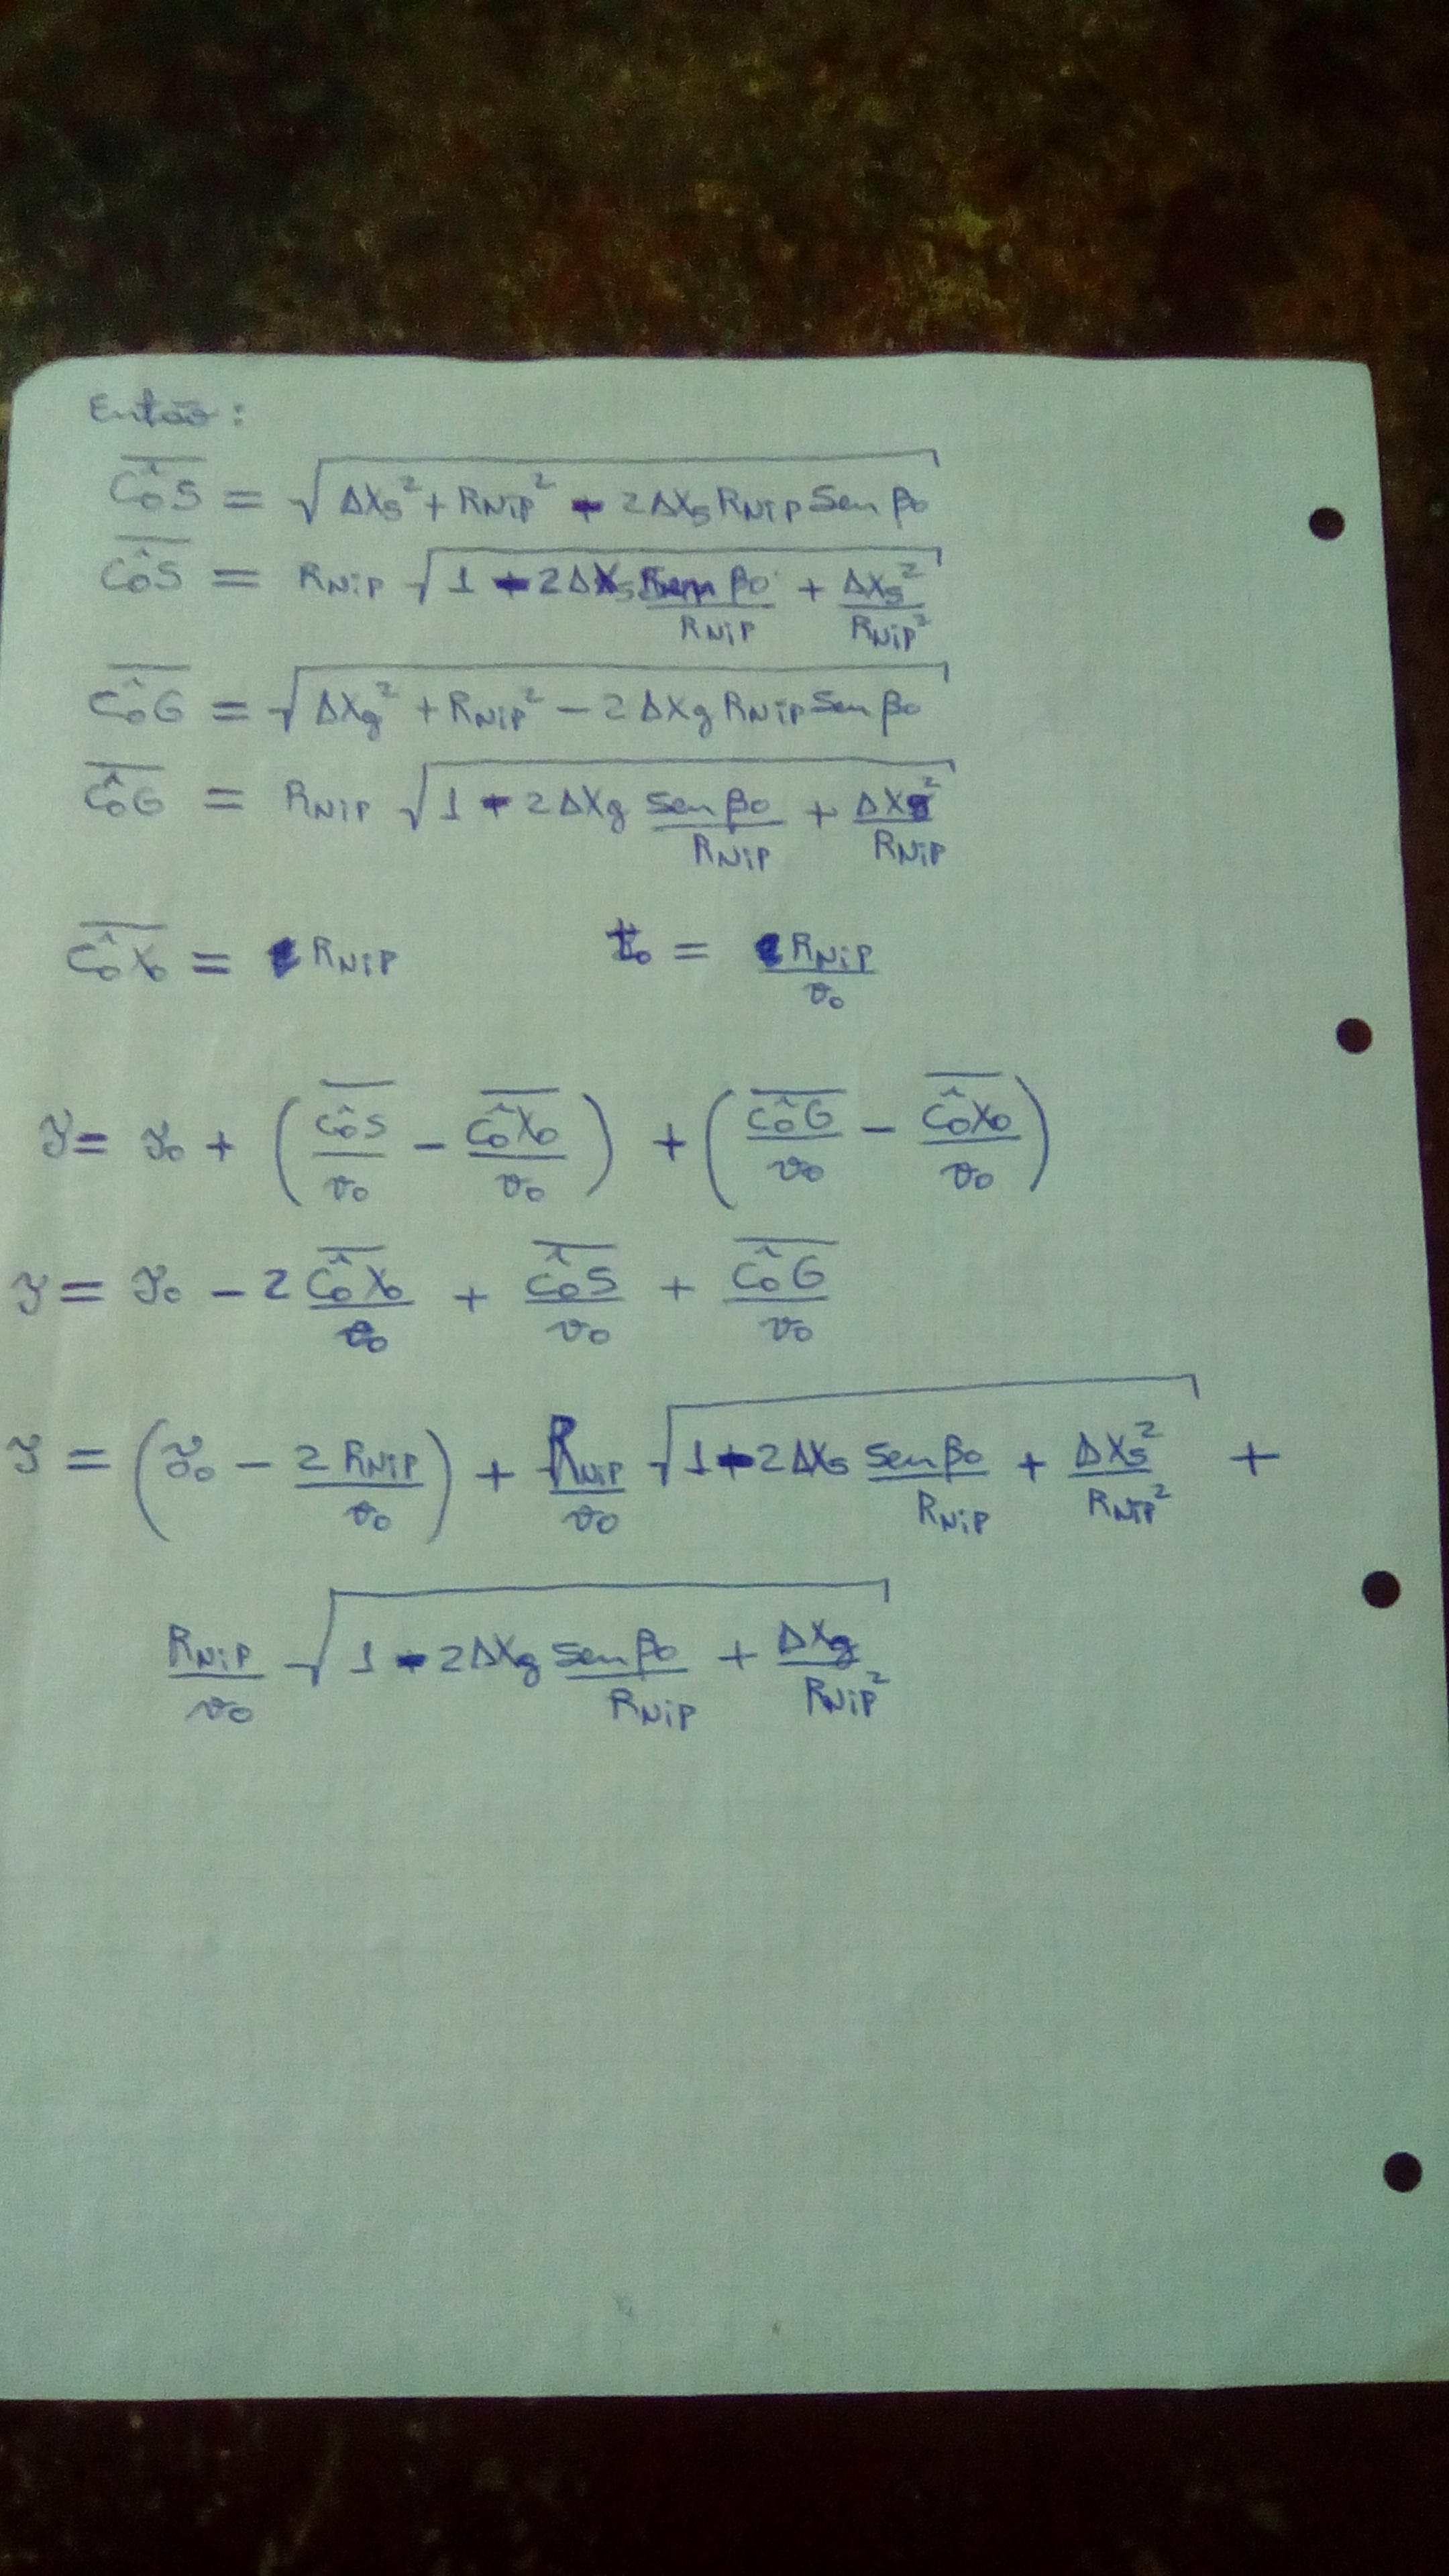 Então:
\overline{Ĉ₀S} = √(ΔXs² + RNiP² - 2ΔXs RNiP Sen β₀)
\overline{Ĉ₀S} = RNiP √(1 - 2ΔXs Sen β₀/RNiP + ΔXs²/RNiP²)
\overline{Ĉ₀G} = √(ΔXg² + RNiP² - 2ΔXg RNiP Sen β₀)
\overline{Ĉ₀G} = RNiP √(1 - 2ΔXg Sen β₀/RNiP + ΔXg²/RNiP)
\overline{Ĉ₀X₀} = RNiP t₀ = RNiP/v₀
𝒯 = 𝒯₀ + (\overline{Ĉ₀S}/v₀ - \overline{Ĉ₀X₀}/v₀) + (\overline{Ĉ₀G}/v₀ - \overline{Ĉ₀X₀}/v₀)
𝒯 = 𝒯₀ - 2 \overline{Ĉ₀X₀}/v₀ + \overline{Ĉ₀S}/v₀ + \overline{Ĉ₀G}/v₀
𝒯 = (𝒯₀ - 2 RNiP/v₀) + RNiP/v₀ √(1 - 2ΔXs Sen β₀/RNiP + ΔXs²/RNiP²) +
RNiP/v₀ √(1 - 2ΔXg Sen β₀/RNiP + ΔXg/RNiP²)